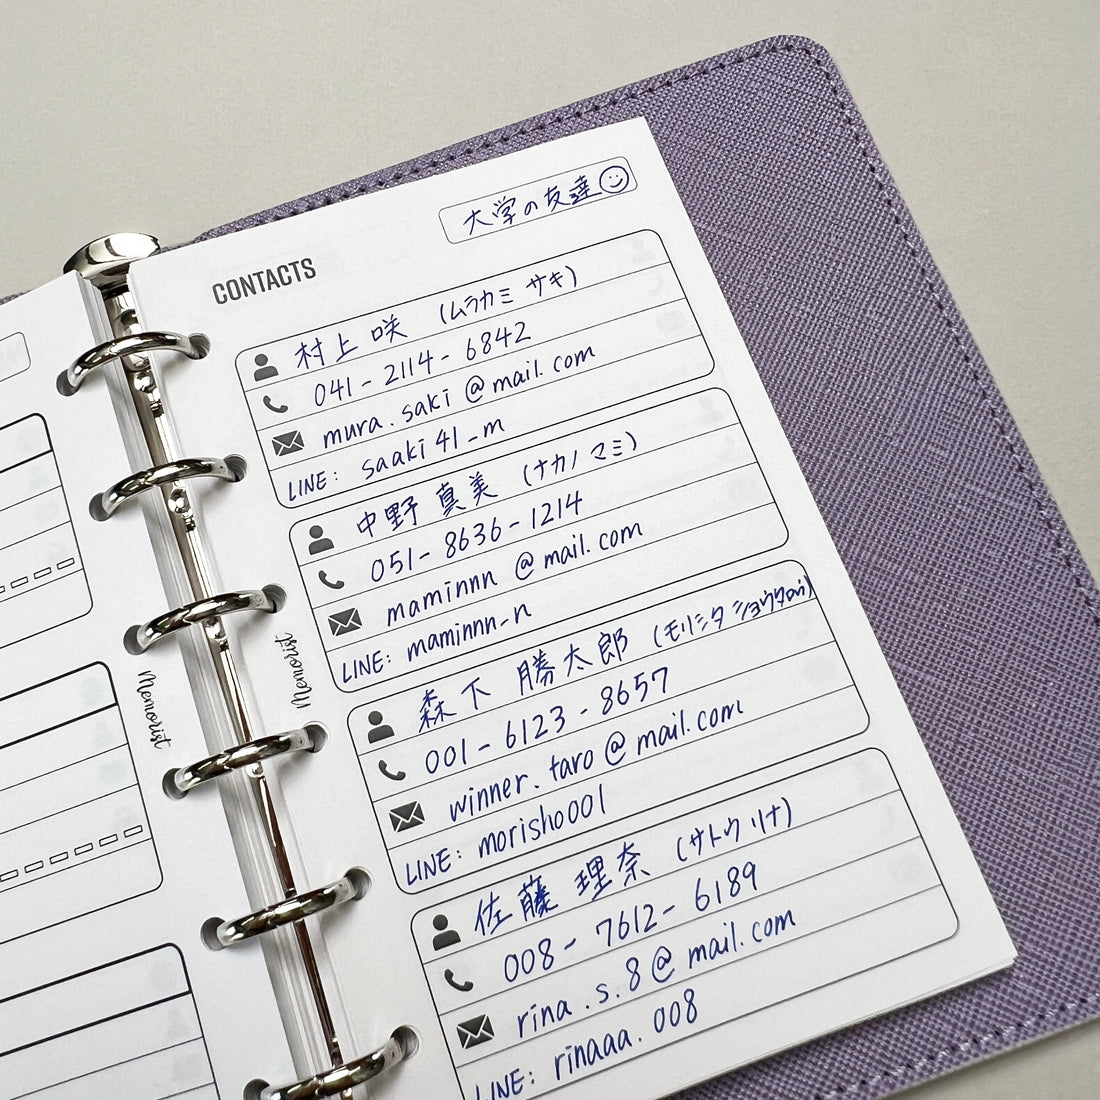 大学の友達
CONTACTS
村上 咲 (ムラカミ サキ)
041-2114-6842
mura.saki@mail.com
LINE: saaki41_m
中野 真美 (ナカノ マミ)
051-8636-1214
maminnn@mail.com
LINE: maminnn_n
森下 勝太郎 (モリシタ ショウタロウ)
001-6123-8657
winner.taro@mail.com
LINE: morisho001
佐藤 理奈 (サトウ リナ)
008-7612-6189
rina.s.8@mail.com
LINE: rinaaa.008
Memorist
Memorist